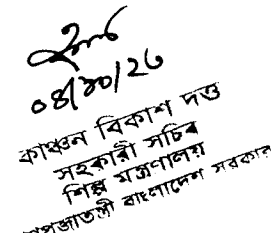 ০৪/১০/২৩
কাঞ্চন বিকাশ দত্ত
সহকারী সচিব
শিল্প মন্ত্রণালয়
গণপ্রজাতন্ত্রী বাংলাদেশ সরকার